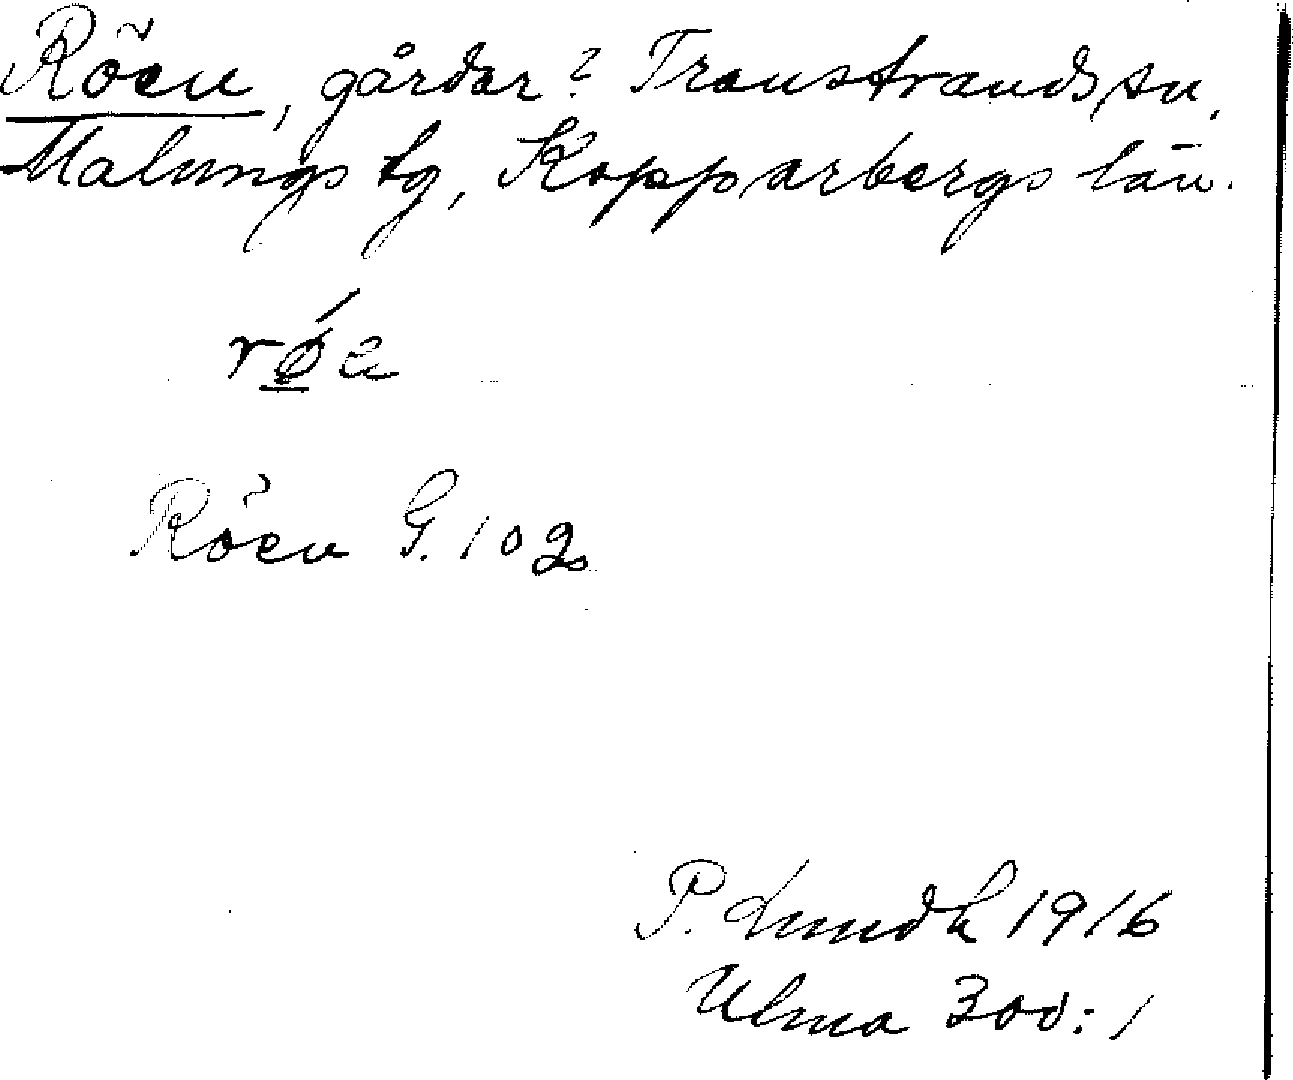 Röen, gårdar? Transtrands sn,
Malungs tg, Kopparbergs län.
rǿ̱a
Röen G. 102
P. Lundh 1916
Ulma 300:1